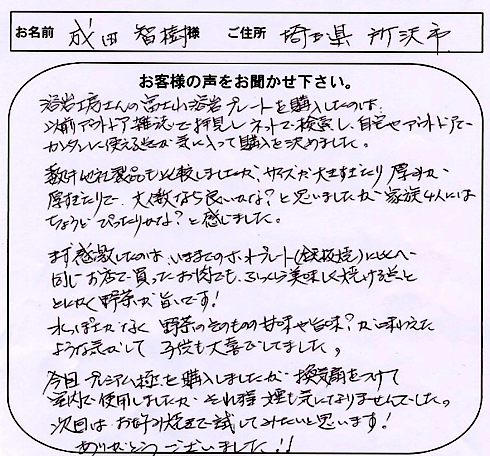 お名前 成田 智樹様 ご住所 埼玉県 所沢市
お客様の声をお聞かせ下さい。
溶岩工房さんの富士山溶岩プレートを購入したのは、
以前アウトドア雑誌で拝見しネットで検索し、自宅やアウトドアで
カンタンに使える点が気に入って購入を決めました。
数社他社製品も比較しましたが、サイズが大きすぎたり厚みが
厚すぎたりで、大人数なら良いかな?と思いましたが家族4人には
ちょうどぴったりかな?と感じました。
まず感激したのは、いままでのホットプレート(鉄板焼)に比べ
同じお店で買ったお肉でも、ふっくら美味しく焼ける点と
とにかく野菜が旨いです!
水っぽさがなく 野菜のそのもの甘味や旨味?が味わえた
ような気がして 子供も大喜びしてました。
今回プレミアム極を購入しましたが 換気扇をつけて
室内で使用しましたが それ程 煙も気になりませんでした。
次回は お好み焼きで試してみたいと思います!
ありがとうございました!!